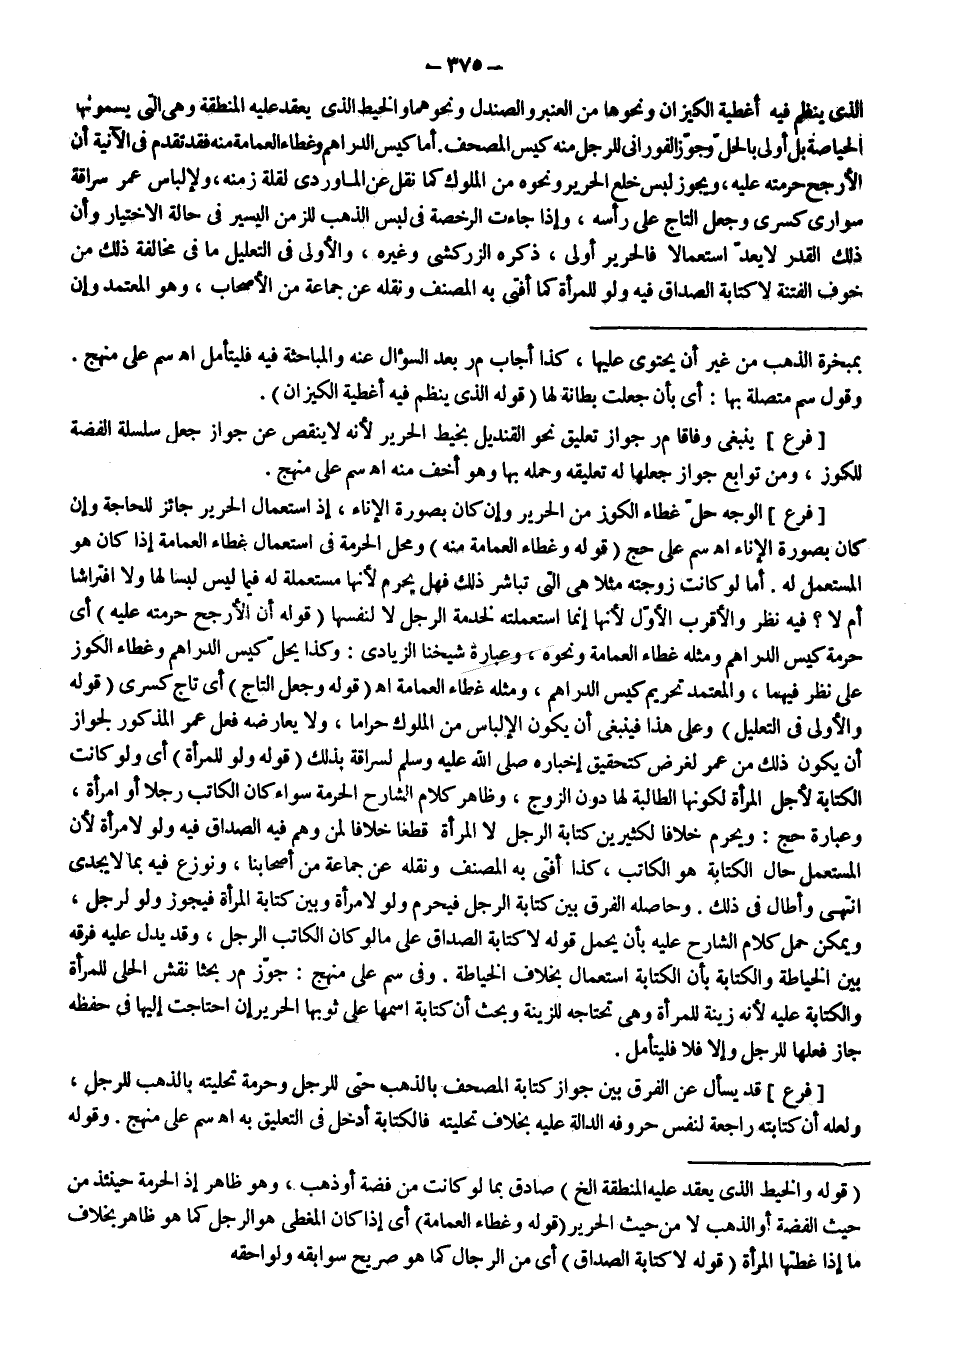 – ٣٧٥ –
الذى ينظم فيه أغطية الكيزان ونحوها من العنبر والصندل ونحوهما والخيط الذى يعقد عليه المنطقة وهى التى يسمونها
الحياصة بل أولى بالحلّ وجوّز الفورانى للرجل منه كيس المصحف . أما كيس الدراهم وغطاء العمامة منه فقد تقدم فى الآنية أن
الأرجح حرمته عليه ، ويجوز لبس خلع الحرير ونحوه من الملوك كما نقل عن الماوردى لقلة زمنه ، ولإلباس عمر سراقة
سوارى كسرى وجعل التاج على رأسه ، وإذا جاءت الرخصة فى لبس الذهب للزمن اليسير فى حالة الاختيار وأن
ذلك القدر لايعدّ استعمالا فالحرير أولى ، ذكره الزركشى وغيره ، والأولى فى التعليل ما فى مخالفة ذلك من
خوف الفتنة لا كتابة الصداق فيه ولو للمرأة كما أفتى به المصنف ونقله عن جماعة من الأصحاب ، وهو المعتمد وإن
بمبخرة الذهب من غير أن يحتوى عليها ، كذا أجاب مر بعد السؤال عنه والمباحثة فيه فليتأمل اه سم على منهج .
وقول سم متصلة بها : أى بأن جعلت بطانة لها ( قوله الذى ينظم فيه أغطية الكيزان ) .
[ فرع ] ينبغى وفاقا مر جواز تعليق نحو القنديل بخيط الحرير لأنه لاينقص عن جواز جعل سلسلة الفضة
للكوز ، ومن توابع جواز جعلها له تعليقه وحمله بها وهو أخف منه اه سم على منهج .
[ فرع ] الوجه حلّ غطاء الكوز من الحرير وإن كان بصورة الإناء ، إذ استعمال الحرير جائز للحاجة وإن
كان بصورة الإناء اه سم على حج ( قوله وغطاء العمامة منه ) ومحل الحرمة فى استعمال غطاء العمامة إذا كان هو
المستعمل له . أما لو كانت زوجته مثلا هى التى تباشر ذلك فهل يحرم لأنها مستعملة له فيما ليس لبسا لها ولا افتراشا
أم لا ؟ فيه نظر والأقرب الأوّل لأنها إنما استعملته لخدمة الرجل لا لنفسها ( قوله أن الأرجح حرمته عليه ) أى
حرمة كيس الدراهم ومثله غطاء العمامة ونحوه ، وعبارة شيخنا الزيادى : وكذا يحلّ كيس الدراهم وغطاء الكوز
على نظر فيهما ، والمعتمد تحريم كيس الدراهم ، ومثله غطاء العمامة اه ( قوله وجعل التاج ) أى تاج كسرى ( قوله
والأولى فى التعليل ) وعلى هذا فينبغى أن يكون الإلباس من الملوك حراما ، ولا يعارضه فعل عمر المذكور لجواز
أن يكون ذلك من عمر لغرض كتحقيق إخباره صلى الله عليه وسلم لسراقة بذلك ( قوله ولو للمرأة ) أى ولو كانت
الكتابة لأجل المرأة لكونها الطالبة لها دون الزوج ، وظاهر كلام الشارح الحرمة سواء كان الكاتب رجلا أو امرأة ،
وعبارة حج : ويحرم خلافا لكثيرين كتابة الرجل لا المرأة قطعا خلافا لمن وهم فيه الصداق فيه ولو لامرأة لأن
المستعمل حال الكتابة هو الكاتب ، كذا أفتى به المصنف ونقله عن جماعة من أصحابنا ، ونوزع فيه بما لايجدى
انتهى وأطال فى ذلك . وحاصله الفرق بين كتابة الرجل فيحرم ولو لامرأة وبين كتابة المرأة فيجوز ولو لرجل ،
ويمكن حمل كلام الشارح عليه بأن يحمل قوله لا كتابة الصداق على مالو كان الكاتب الرجل ، وقد يدل عليه فرقه
بين الخياطة والكتابة بأن الكتابة استعمال بخلاف الخياطة . وفى سم على منهج : جوّز مر بحثا نقش الحلى للمرأة
والكتابة عليه لأنه زينة للمرأة وهى تحتاجه للزينة وبحث أن كتابة اسمها على ثوبها الحرير إن احتاجت إليها فى حفظه
جاز فعلها للرجل وإلا فلا فليتأمل .
[ فرع ] قد يسأل عن الفرق بين جواز كتابة المصحف بالذهب حتى للرجل وحرمة تحليته بالذهب للرجل ،
ولعله أن كتابته راجعة لنفس حروفه الدالة عليه بخلاف تحليته فالكتابة أدخل فى التعليق به اه سم على منهج . وقوله
( قوله والخيط الذى يعقد عليه المنطقة الخ ) صادق بما لو كانت من فضة أو ذهب ، وهو ظاهر إذ الحرمة حينئذ من
حيث الفضة أو الذهب لا من حيث الحرير ( قوله وغطاء العمامة ) أى إذا كان المغطى هو الرجل كما هو ظاهر بخلاف
ما إذا غطتها المرأة ( قوله لا كتابة الصداق ) أى من الرجال كما هو صريح سوابقه ولواحقه